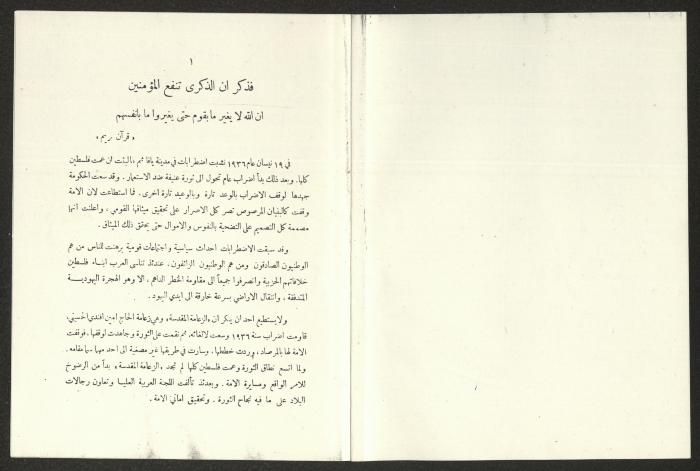 ١
فذكر ان الذكرى تنفع المؤمنين
ان الله لا يغير ما بقوم حتى يغيروا ما بأنفسهم
« قرآن كريم »
في ١٩ نيسان عام ١٩٣٦ نشبت اضطرابات في مدينة يافا ثم ما لبثت ان عمت فلسطين
كلها. وبعد ذلك بدأ اضراب عام تحول الى ثورة عنيفة ضد الاستعمار. وقد سعت الحكومة
جهدها لوقف الاضراب بالوعد تارة وبالوعيد تارة اخرى. فما استطاعت لان الامة
وقفت كالبنيان المرصوص تصر كل الاصرار على تحقيق ميثاقها القومي، واعلنت انها
مصممة كل التصميم على التضحية بالنفوس والاموال حتى يحقق ذلك الميثاق.
وقد سبقت الاضطرابات احداث سياسية واجتماعات قومية برهنت للناس من هم
الوطنيون الصادقون ومن هم الوطنيون الزائفون. عندئذ تناسى العرب ابناء فلسطين
خلافاتهم الحزبية وانصرفوا جميعاً الى مقاومة الخطر الداهم، الا وهو الهجرة اليهودية
المتدفقة، وانتقال الاراضي بسرعة خارقة الى ايدي اليهود.
ولا يستطيع احد ان ينكر ان «الزعامة المقدسة» وهي زعامة الحاج امين افندي الحسيني،
قاومت اضراب سنة ١٩٣٦ وسعت لالغائه. ثم نقمت على الثورة وجاهدت لوقفها، فوقفت
الامة لها بالمرصاد، وردت خططها، وسارت في طريقها غير مصغية الى احد مهما سما مقامه.
ولما اتسع نطاق الثورة وعمت فلسطين كلها لم تجد «الزعامة المقدسة» بداً من الرضوخ
للامر الواقع ومسايرة الامة. وبعدئذ تألفت اللجنة العربية العليا وتعاون رجالات
البلاد على ما فيه نجاح الثورة. وتحقيق اماني الامة.